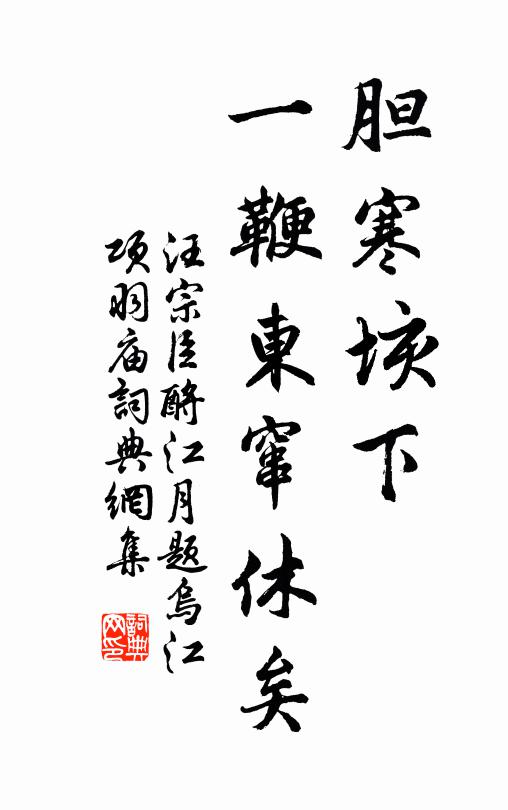 胆寒垓下
一鞭東窜休矣
汪宗臣酹江月题烏江
项羽庙詞典網集
詞典网印